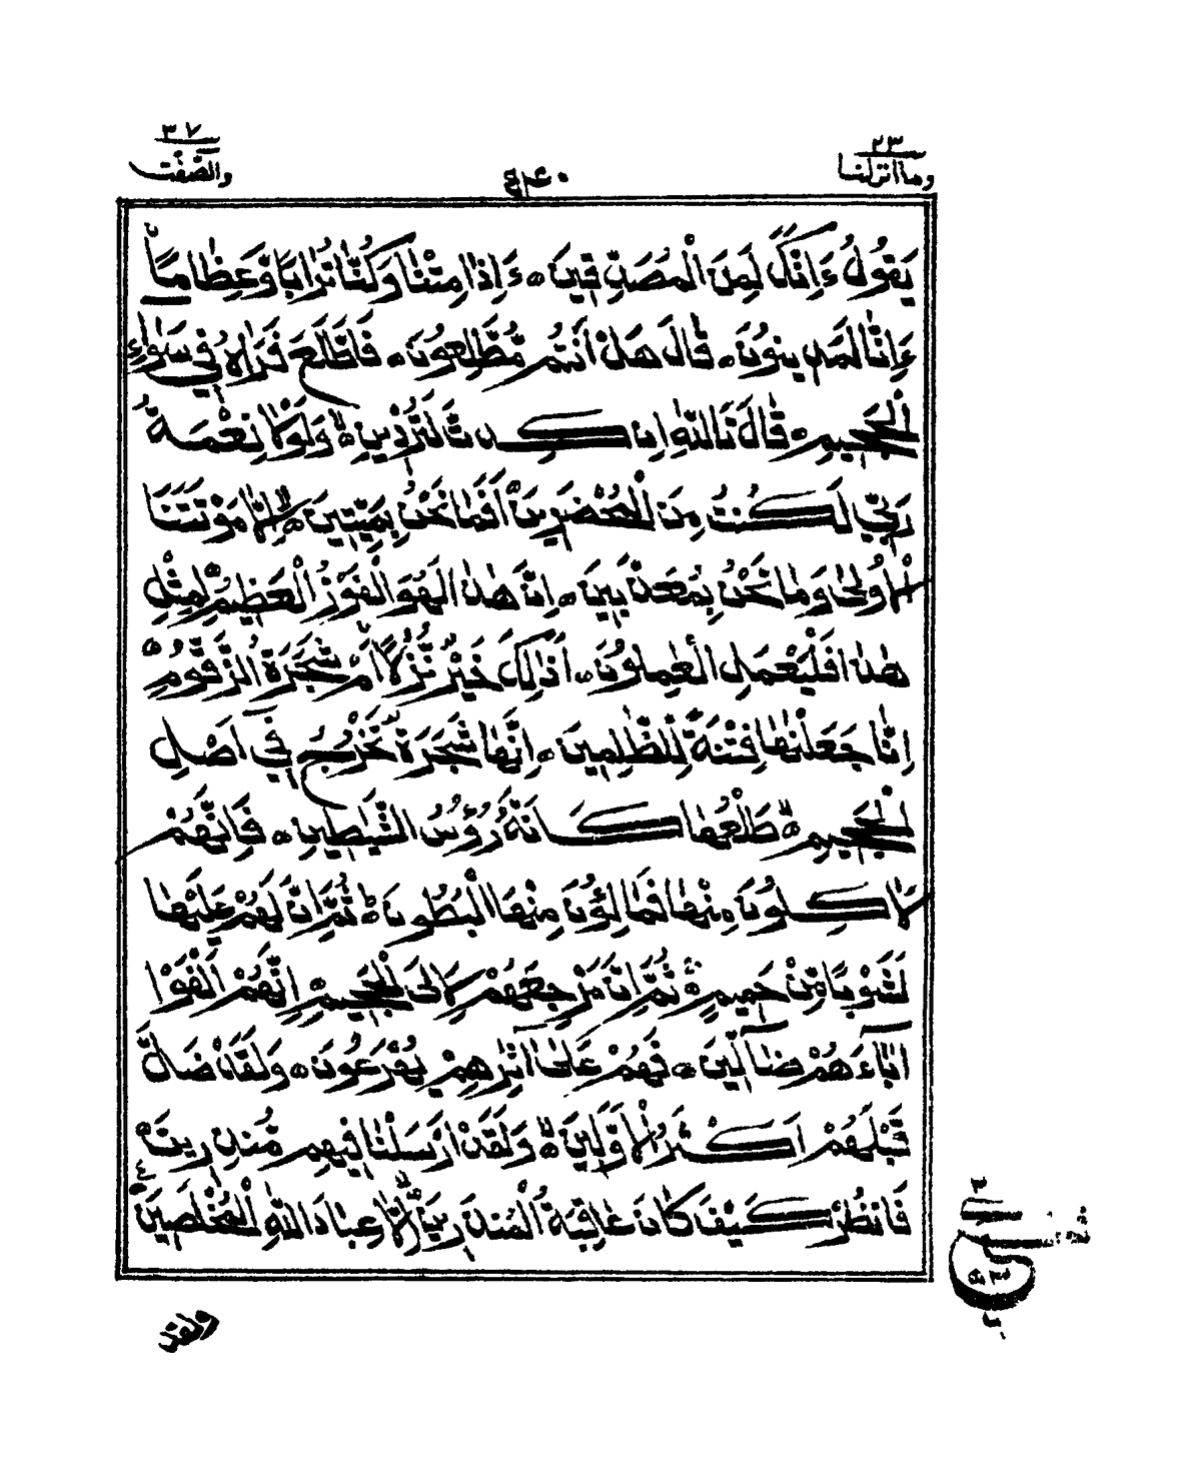 ٢٣
وما انزلنا
٦٤٠
٣٧
والصّفّت
يَقُولُ ءَاِنَّكَ لَمِنَ الْمُصَدِّقِيْنَ ۝ ءَاِذَا مِتْنَا وَكُنَّا تُرَابًا وَّعِظَامًا
ءَاِنَّا لَمَدِيْنُوْنَ ۝ قَالَ هَلْ اَنْتُمْ مُّطَّلِعُوْنَ ۝ فَاطَّلَعَ فَرَاٰهُ فِيْ سَوَآءِ
الْجَحِيْمِ ۝ قَالَ تَاللّٰهِ اِنْ كِدْتَّ لَتُرْدِيْنِ ۝ وَلَوْلَا نِعْمَةُ
رَبِّيْ لَكُنْتُ مِنَ الْمُحْضَرِيْنَ ۝ اَفَمَا نَحْنُ بِمَيِّتِيْنَ ۝ اِلَّا مَوْتَتَنَا
الْاُوْلٰى وَمَا نَحْنُ بِمُعَذَّبِيْنَ ۝ اِنَّ هٰذَا لَهُوَ الْفَوْزُ الْعَظِيْمُ ۝ لِمِثْلِ
هٰذَا فَلْيَعْمَلِ الْعٰمِلُوْنَ ۝ اَذٰلِكَ خَيْرٌ نُّزُلًا اَمْ شَجَرَةُ الزَّقُّوْمِ ۝
اِنَّا جَعَلْنٰهَا فِتْنَةً لِّلظّٰلِمِيْنَ ۝ اِنَّهَا شَجَرَةٌ تَخْرُجُ فِيْٓ اَصْلِ
الْجَحِيْمِ ۝ طَلْعُهَا كَاَنَّهٗ رُءُوْسُ الشَّيٰطِيْنِ ۝ فَاِنَّهُمْ
لَاٰكِلُوْنَ مِنْهَا فَمَالِـُٔوْنَ مِنْهَا الْبُطُوْنَ ۝ ثُمَّ اِنَّ لَهُمْ عَلَيْهَا
لَشَوْبًا مِّنْ حَمِيْمٍ ۝ ثُمَّ اِنَّ مَرْجِعَهُمْ لَاِلَى الْجَحِيْمِ ۝ اِنَّهُمْ اَلْفَوْا
اٰبَآءَهُمْ ضَآلِّيْنَ ۝ فَهُمْ عَلٰٓى اٰثٰرِهِمْ يُهْرَعُوْنَ ۝ وَلَقَدْ ضَلَّ
قَبْلَهُمْ اَكْثَرُ الْاَوَّلِيْنَ ۝ وَلَقَدْ اَرْسَلْنَا فِيْهِمْ مُّنْذِرِيْنَ ۝
فَانْظُرْ كَيْفَ كَانَ عَاقِبَةُ الْمُنْذَرِيْنَ ۝ اِلَّا عِبَادَ اللّٰهِ الْمُخْلَصِيْنَ ۝
ولقد